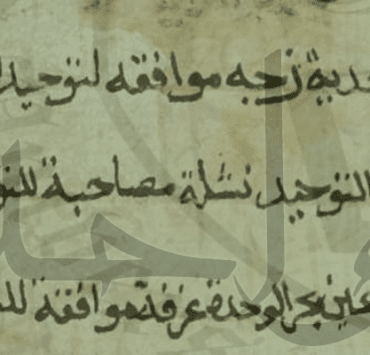 حدية زجه موافقه لتوحيد
التوحيد نشلة مصاحبة للتو
عين بحر الوحدة غرقة موافقة